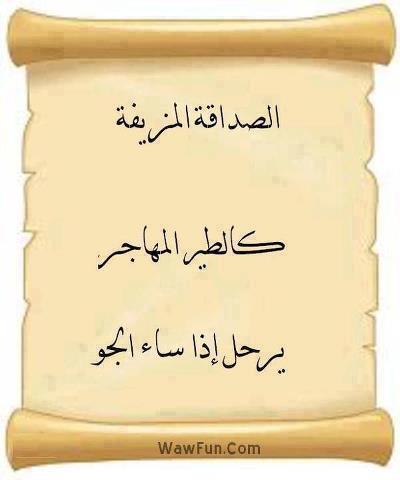 الصداقة المزيفة
كالطير المهاجر
يرحل إذا ساء الجو
WawFun.Com